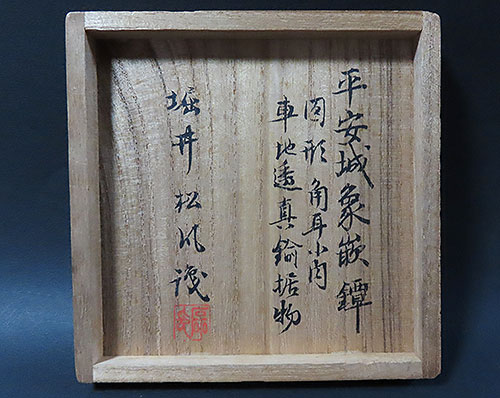 平安城象嵌鐔
円形角耳小肉
車地透真鍮据物
堀井松風識